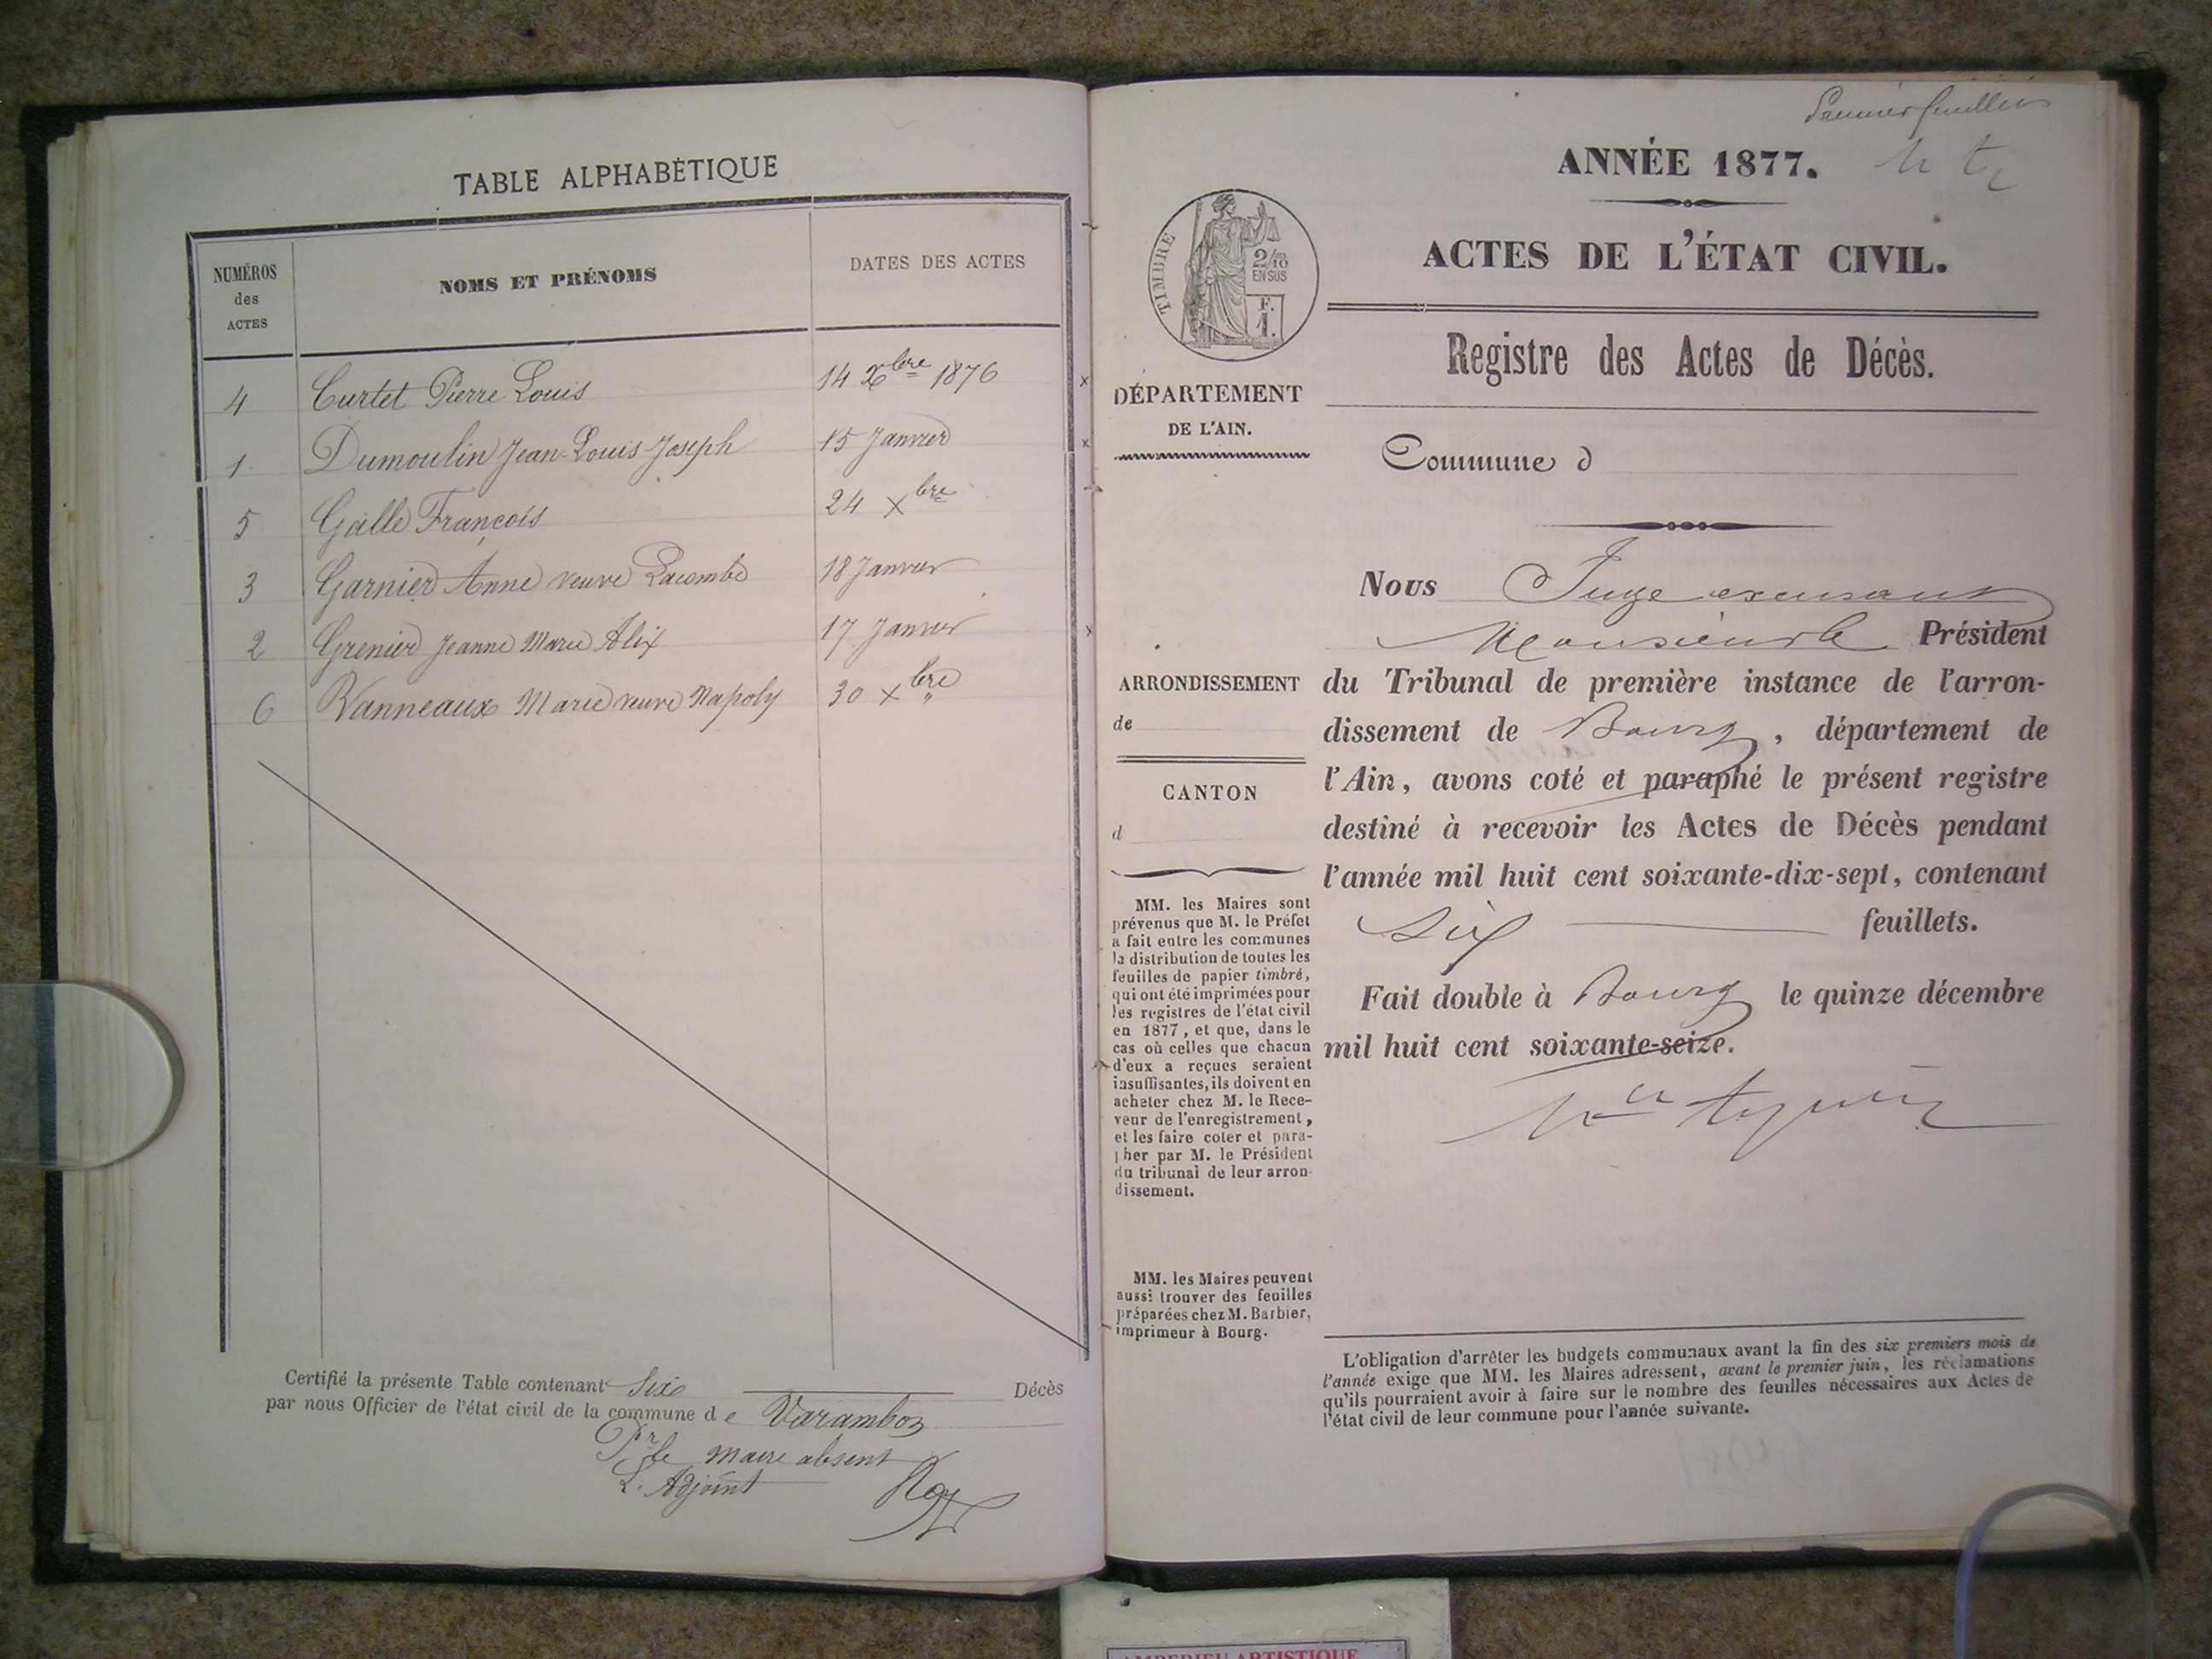 TABLE ALPHABÉTIQUE
NUMÉROS des ACTES
NOMS ET PRÉNOMS
DATES DES ACTES
4 Curtet Pierre Louis 14 Xbre 1876
1 Dumoulin Jean-Louis Joseph 15 Janvier
5 Gallé François 24 Xbre
3 Garnier Anne veuve Lacombe 18 Janvier
2 Grenier Jeanne Marie Alix 17 Janvier
6 Vanneaux Marie veuve Napoly 30 Xbre
Certifié la présente Table contenant Six Décès
par nous Officier de l'état civil de la commune de Varambon
Pr le maire absent
L'Adjoint
Premier feuillet
ANNÉE 1877.
ACTES DE L'ÉTAT CIVIL.
TIMBRE
2/10
EN SUS
F.
1.
Registre des Actes de Décès.
DÉPARTEMENT
DE L'AIN.
Commune d
ARRONDISSEMENT
de
CANTON
d
MM. les Maires sont
prévenus que M. le Préfet
a fait entre les communes
la distribution de toutes les
feuilles de papier timbré,
qui ont été imprimées pour
les registres de l'état civil
en 1877, et que, dans le
cas où celles que chacun
d'eux a reçues seraient
insuffisantes, ils doivent en
acheter chez M. le Rece-
veur de l'enregistrement,
et les faire coter et para-
pher par M. le Président
du tribunal de leur arron-
dissement.
MM. les Maires peuvent
aussi trouver des feuilles
préparées chez M. Barbier,
imprimeur à Bourg.
Nous Juge
Monsieur le Président
du Tribunal de première instance de l'arron-
dissement de Bourg, département de
l'Ain, avons coté et paraphé le présent registre
destiné à recevoir les Actes de Décès pendant
l'année mil huit cent soixante-dix-sept, contenant
Six feuillets.
Fait double à Bourg le quinze décembre
mil huit cent soixante-seize.
L'obligation d'arrêter les budgets communaux avant la fin des six premiers mois de
l'année exige que MM. les Maires adressent, avant le premier juin, les réclamations
qu'ils pourraient avoir à faire sur le nombre des feuilles nécessaires aux Actes de
l'état civil de leur commune pour l'année suivante.
AMBERIEU ARTISTIQUE